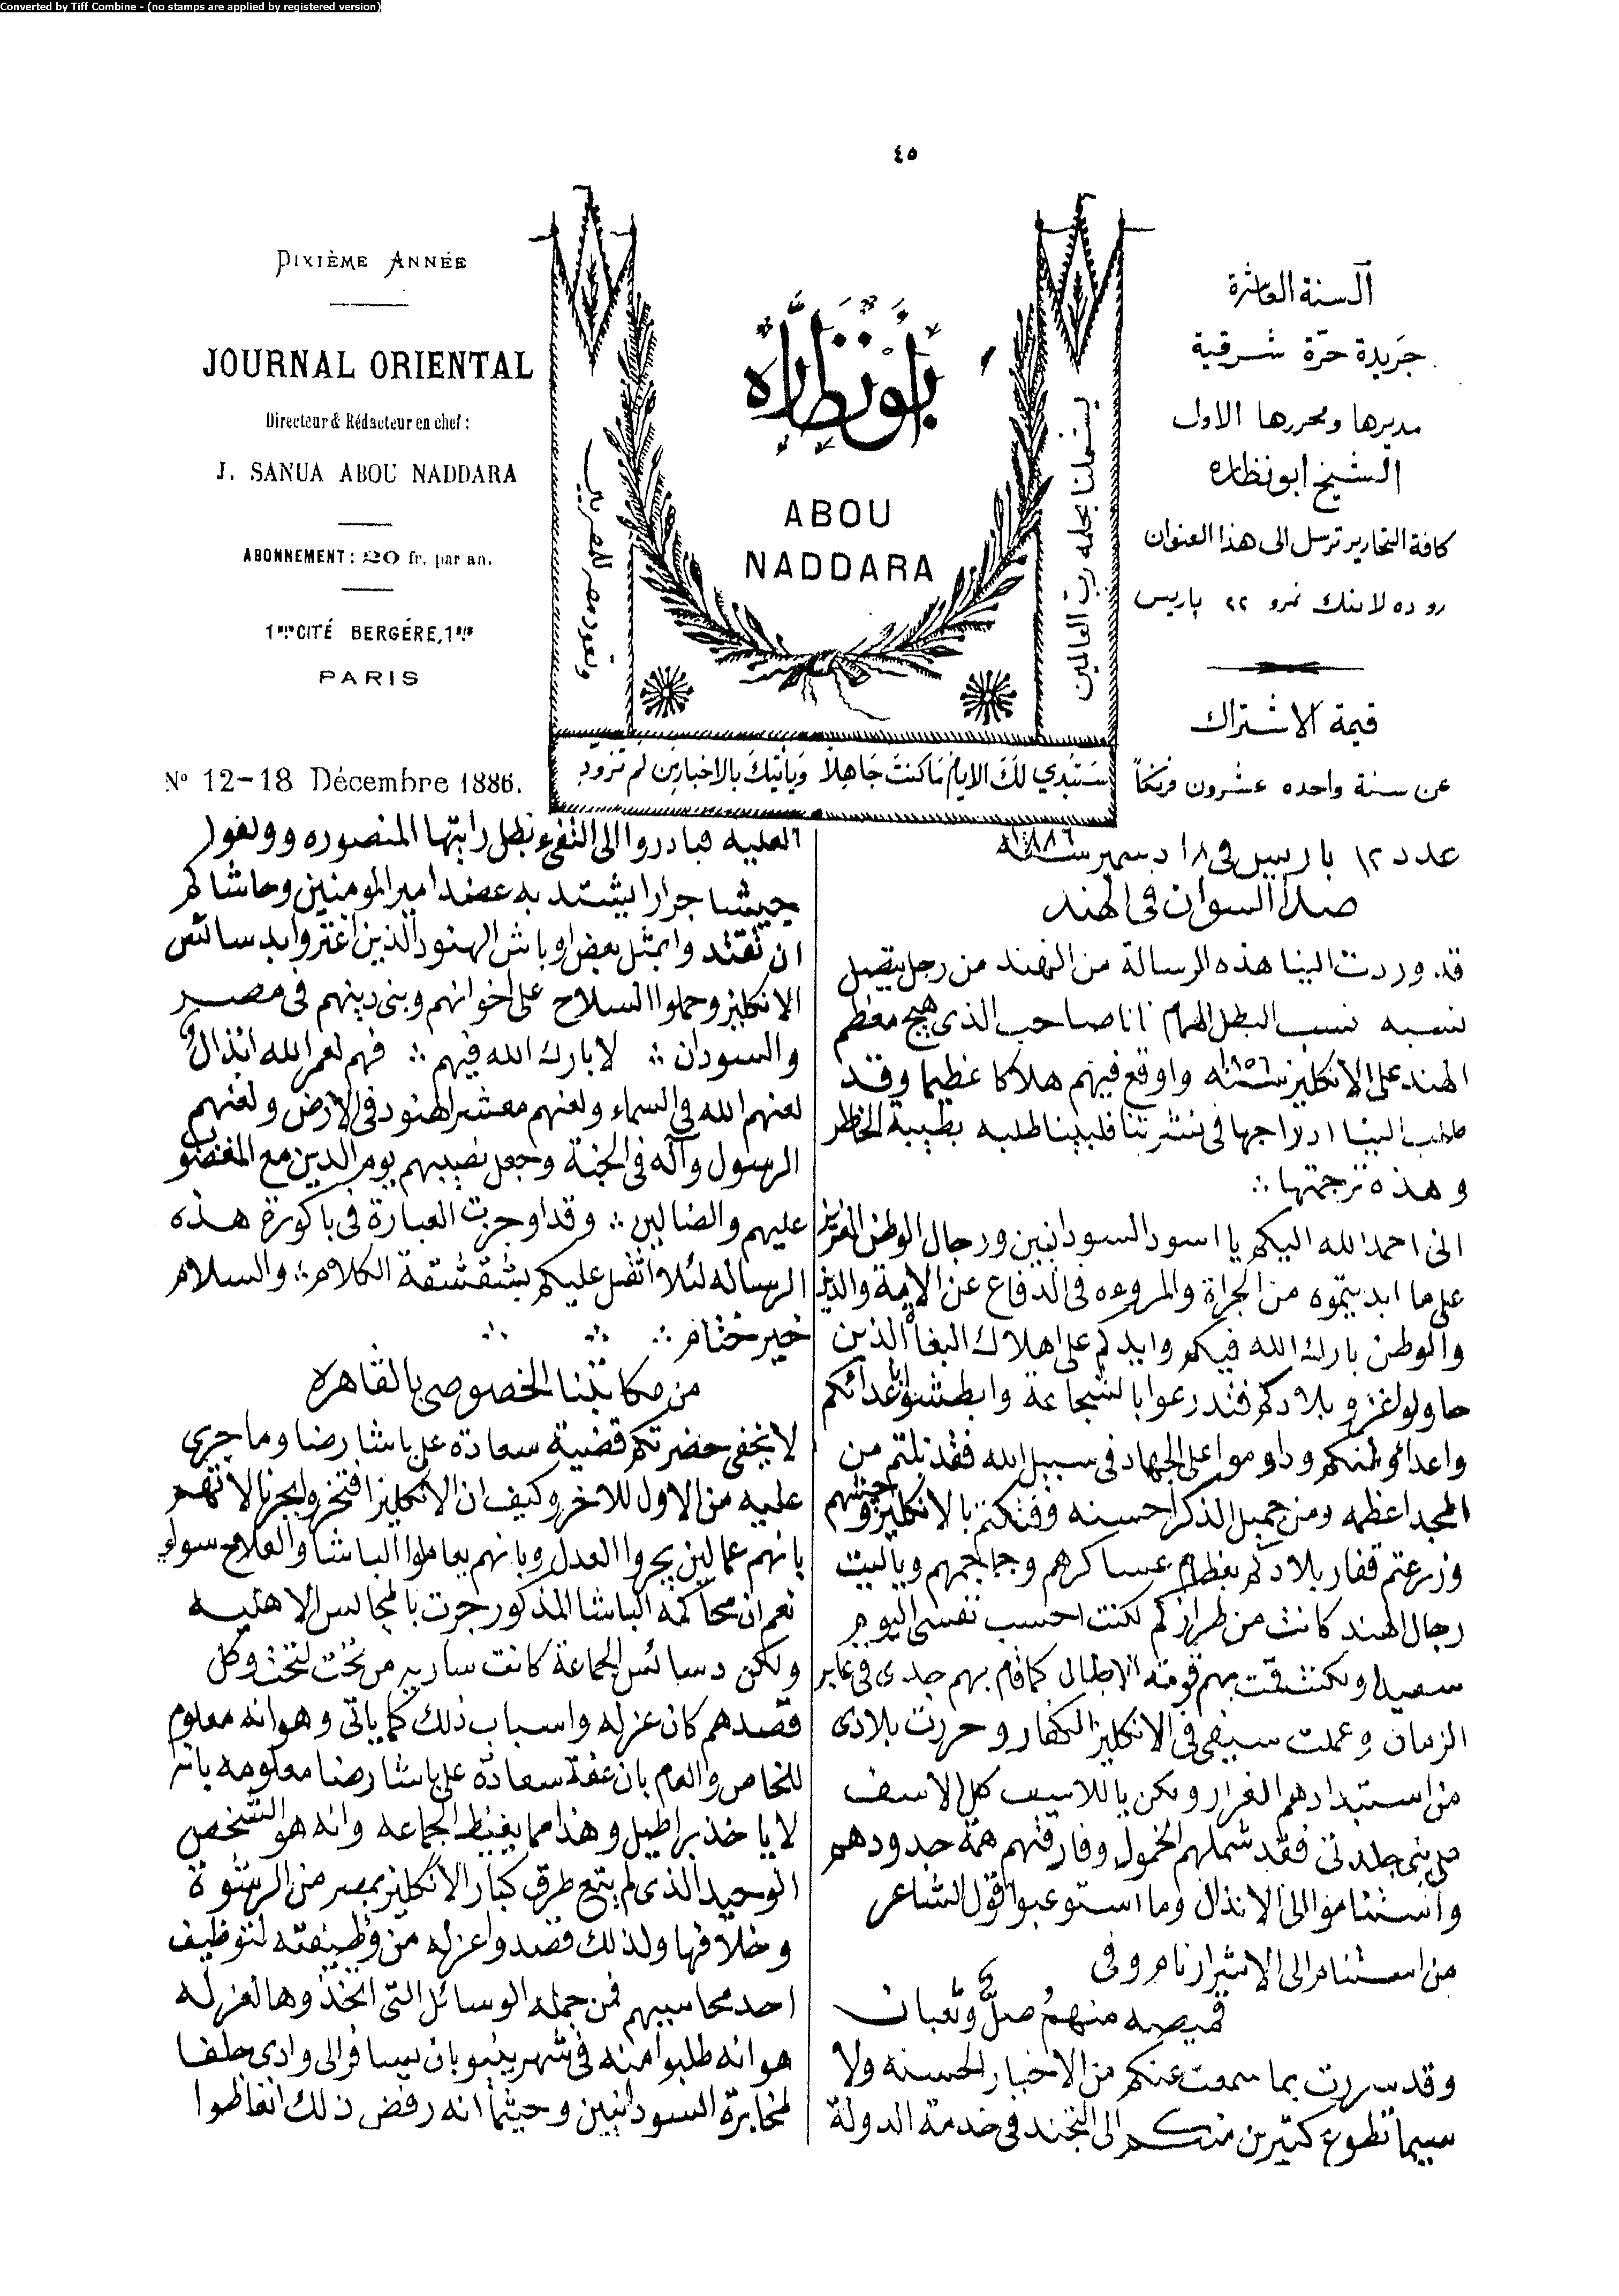 Converted by Tiff Combine - (no stamps are applied by registered version)
٤٥
DIXIÈME ANNÉE
JOURNAL ORIENTAL
Directeur & Rédacteur en chef:
J. SANUA ABOU NADDARA
ABONNEMENT: 20 fr. par an.
CITÉ BERGÉRE,
PARIS
Nº 12-18 Décembre 1886.
ابو نظاره
ABOU
NADDARA
يشملنا بحلمه رب العالمين
وتعود مصر للمصريين
ستبدي لك الايام ما كنت جاهلا وياتيك بالاخبار من لم تزود
السنة العاشرة
جريدة حرّة شرقية
مديرها ومحررها الاول
الشيخ ابو نظاره
كافة التحارير ترسل الى هذا العنوان
رو ده لا بنك نمرو ٢٢ پاريس
قيمة الاشتراك
عن سنة واحده عشرون فرنكاً
عدد ١٢ باريس فى ١٨ دسمبر سنة ١٨٨٦
صدا السوان فى الهند
قد وردت الينا هذه الرسالة من الهند من رجل يتصل
نسبه نسب البطل الهمام انا صاحب الذى هيج معظم
الهند على الانكليز سنة ١٨٥٦ واوقع فيهم هلاكا عظيما وقد
طلب الينا ادراجها فى نشرتنا فلبينا طلبه بطيبة الخاطر
وهذه ترجمتها ∴
انى احمد الله اليكم يا اسود السودانيين ورجال الوطن العزيز
على ما ابديتموه من الجراة والمروءه فى الدفاع عن الامة والدين
والوطن بارك الله فيكم وايدكم على اهلاك البغاة الذين
حاولوا غزو بلادكم فتدرعوا بالشجاعة وابطشوا باعدائكم
واعدا وطنكم وداوموا على الجهاد فى سبيل الله فقد نلتم من
المجد اعظمه ومن جميل الذكر احسنه وفتكتم بالانكليز
وزرعتم قفار بلادكم بعظام عساكرهم وجماجمهم وياليت
رجال الهند كانت من طرازكم لكنت احسب نفسى اليوم
سعيدا ولكنت قمت بهم قومة الابطال كما قام بهم جدى فى غابر
الزمان وعملت سيفى فى الانكليز الكفار وحررت بلادى
من استبدادهم الغرار ولكن ياللاسف كل الاسف
على بنى جلدتى فقد شملهم الخمول وفارقتهم همة جدودهم
واستناموا الى الانذال وما استوعبوا قول الشاعر
من استنام الى الاشرار نام وفى
قميصه منهمُ صلٌّ وثعبان
وقد سررت بما سمعت عنكم من الاخبار الحسنه ولا
سيما تطوع كثيرين منكم الى التجند فى خدمة الدولة
العليه فبادروا الى التفيء بظل رايتها المنصوره
جيشا جرارا يشتد به عضد امير المومنين وحاشاكم
ان تقتدوا بمثل بعض اوباش الهنود الذين اغتروا بدسائس
الانكليز وحملوا السلاح على اخوانهم وبنى دينهم فى مصر
والسودان ∴ لا بارك الله فيهم ∴ فهم لعمر الله انذال
لعنهم الله فى السماء ولعنهم معشر الهنود فى الارض ولعنهم
الرسول وآله فى الجنة وجعل نصيبهم يوم الدين مع المغضوب
عليهم والضالين ∴ وقد اوجزت العبارة فى باكورة هذه
الرساله لئلا اثقل عليكم بشقشقة الكلام ∴ والسلام
خير ختام ∴ ∴ ∴
من مكاتبنا الخصوصى بالقاهره
لا يخفى حضرتكم قضية سعادة على باشا رضا وما جرى
عليه من الاول للاخر وكيف ان الانكليز افتخروا بجرنالاتهم
بانهم عمالين يجروا العدل وبانهم يعاملوا الباشا والفلاح سواء
نعم ان محاكمة الباشا المذكور جرت بالمجالس الاهليه
ولكن دسائس الجماعة كانت ساريه من تحت لتحت وكل
قصدهم كان عزله واسباب ذلك كما ياتى وهو انه معلوم
للخاص والعام بان عفة سعادة على باشا رضا معلومه بانه
لا ياخذ براطيل وهذا مما يغيظ الجماعه وانه هو الشخص
الوحيد الذى لم يتبع طرق كبار الانكليز بمصر من الرشوة
وخلافها ولذلك قصدوا عزله من وظيفته لتوظيف
احد محاسيبهم فمن جمله الوسائل التى اتخذوها لعزله
هو انه طلبوا منه فى شهر ينيو بان يسافر الى وادى حلفا
لمخابرة السودانيين وحيثما انه رفض ذلك انغاظوا